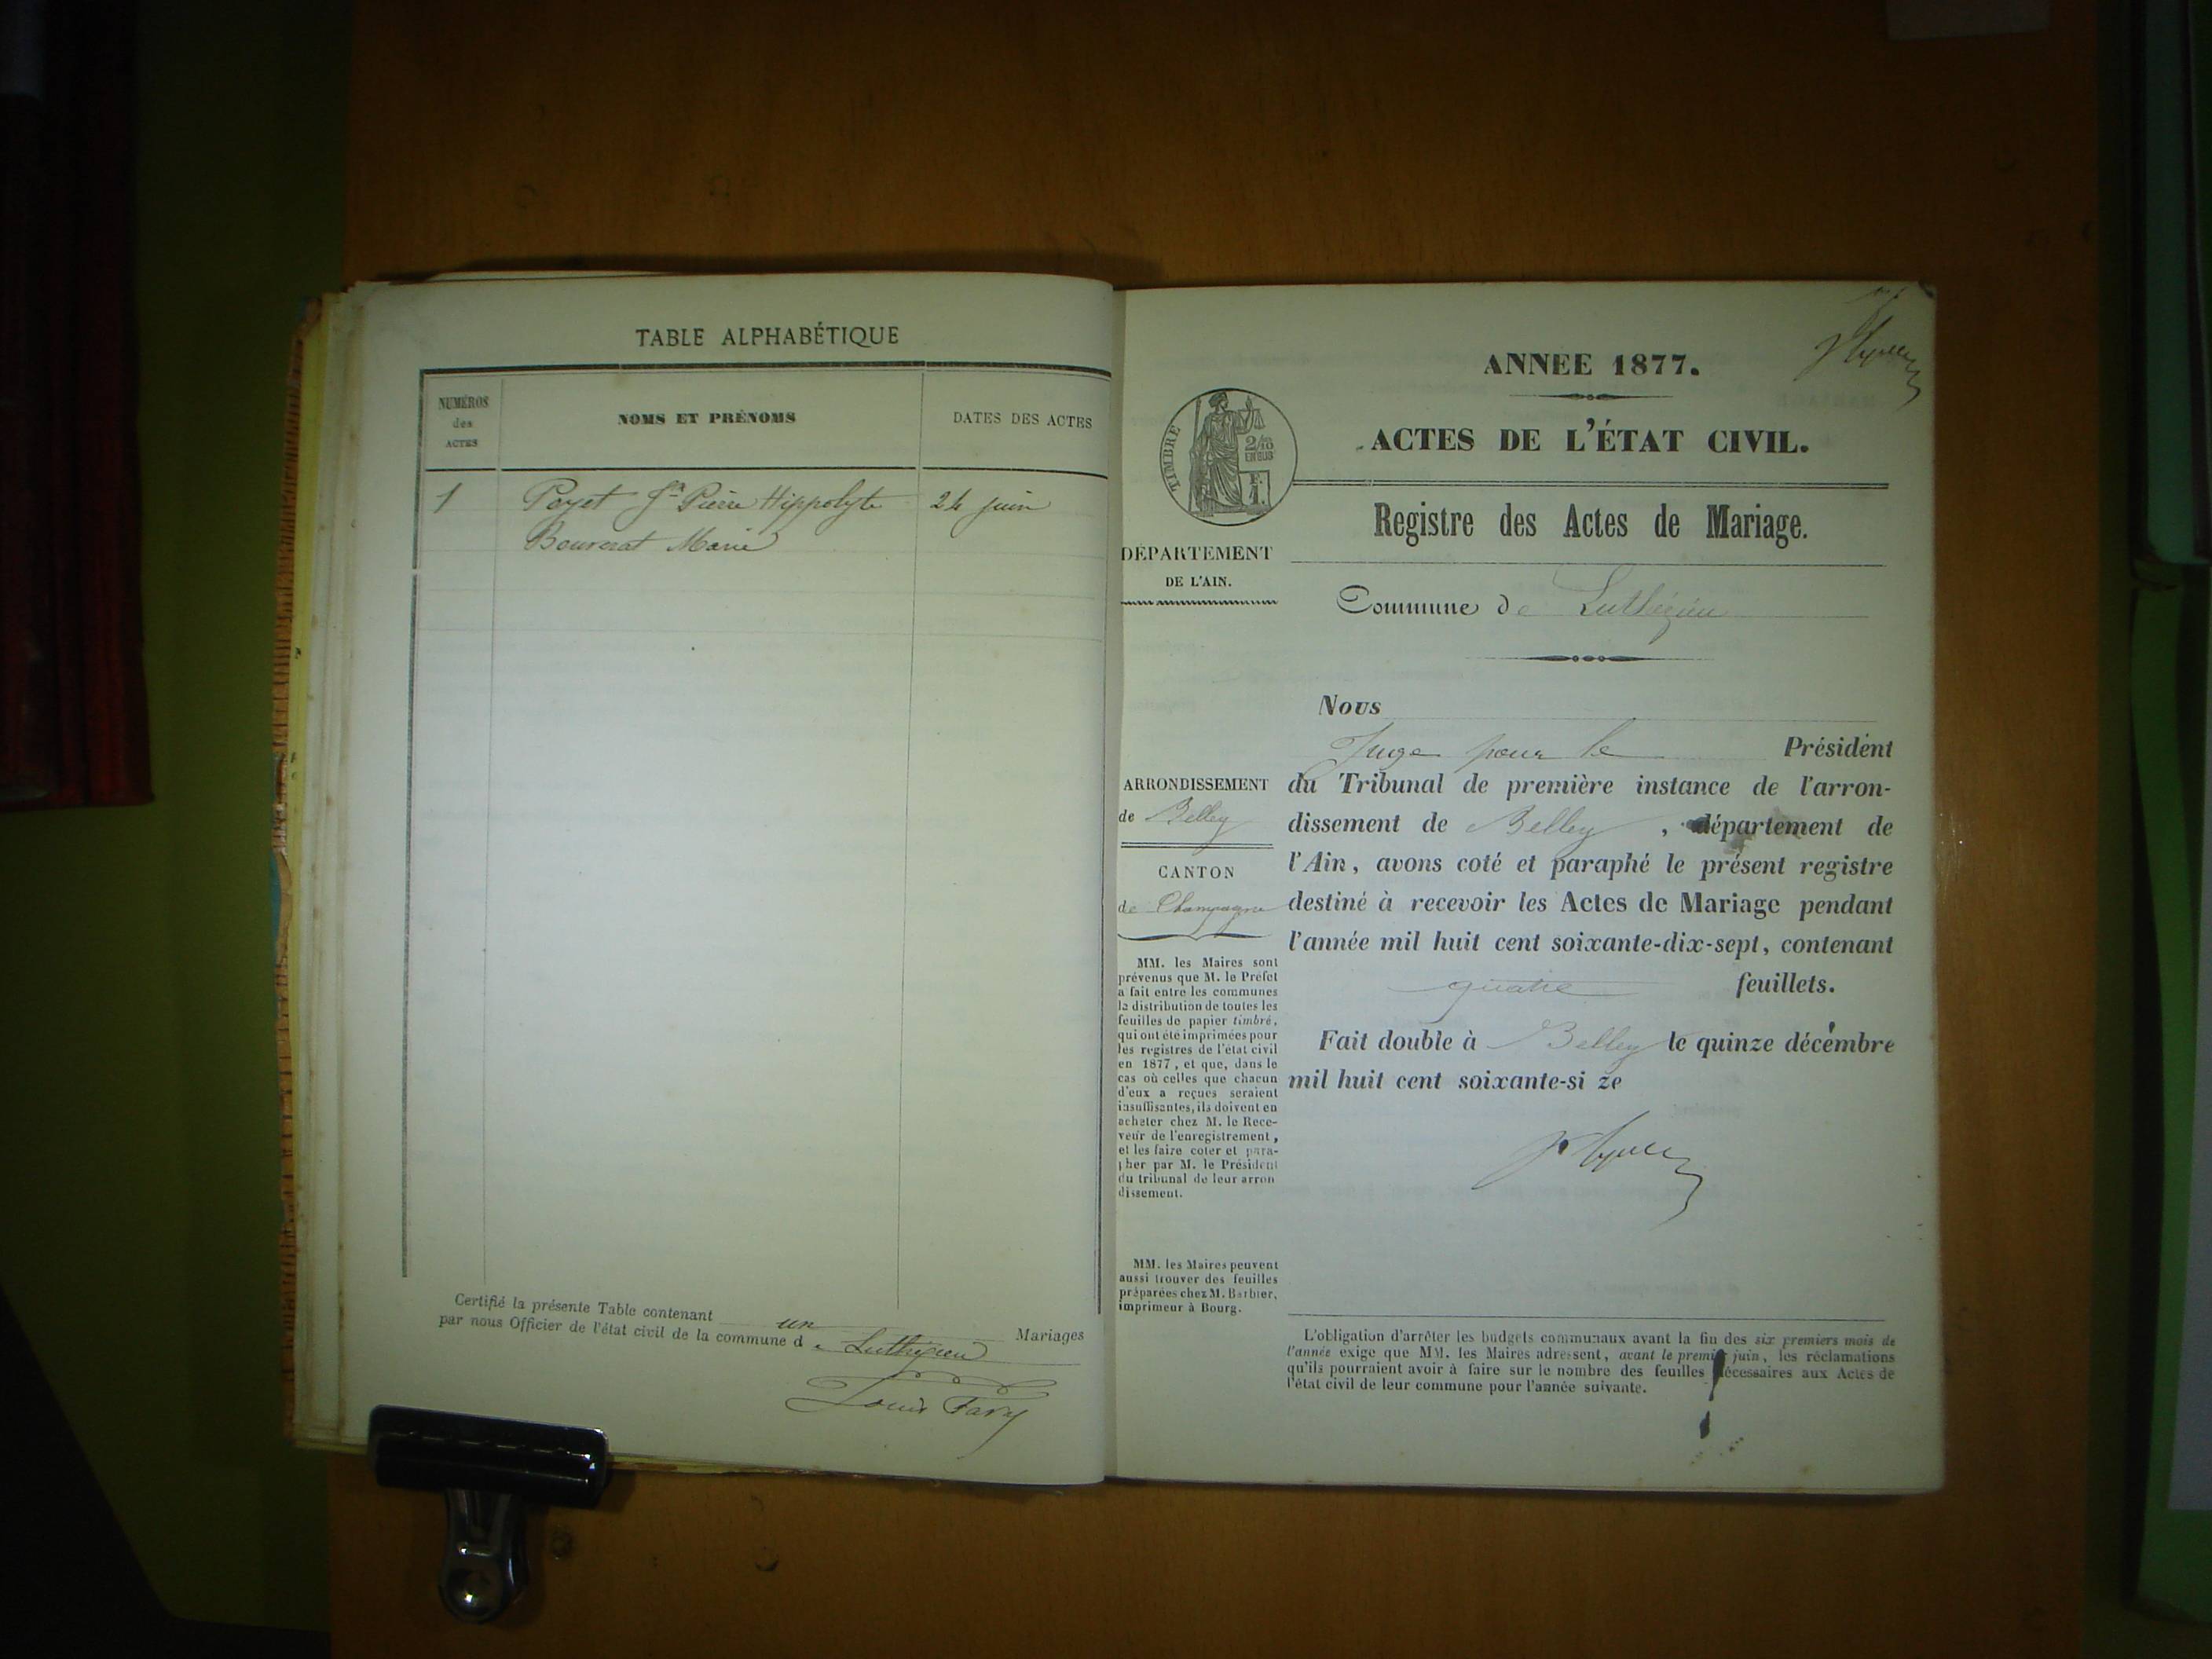 TABLE ALPHABÉTIQUE
NUMÉROS
des
ACTES
NOMS ET PRÉNOMS
DATES DES ACTES
1
Poyet Jn Pierre Hippolyte
24 juin
Bouverat Marie
Certifié la présente Table contenant un Mariages
par nous Officier de l'état civil de la commune de Luthézieu
Louis Favy
ANNÉE 1877.
ACTES DE L'ÉTAT CIVIL.
TIMBRE
2/10
EN SUS
Registre des Actes de Mariage.
DÉPARTEMENT
DE L'AIN.
Commune de Luthézieu
Nous
Juge pour le Président
du Tribunal de première instance de l'arron-
dissement de Belley, département de
l'Ain, avons coté et paraphé le présent registre
destiné à recevoir les Actes de Mariage pendant
l'année mil huit cent soixante-dix-sept, contenant
quatre feuillets.
Fait double à Belley le quinze décembre
mil huit cent soixante-si ze
ARRONDISSEMENT
de Belley
CANTON
de Champagne
MM. les Maires sont
prévenus que M. le Préfet
a fait entre les communes
la distribution de toutes les
feuilles de papier timbré,
qui ont été imprimées pour
les registres de l'état civil
en 1877, et que, dans le
cas où celles que chacun
d'eux a reçues seraient
insuffisantes, ils doivent en
acheter chez M. le Rece-
veur de l'enregistrement,
et les faire coter et para-
pher par M. le Président
du tribunal de leur arron
dissement.
MM. les Maires peuvent
aussi trouver des feuilles
préparées chez M. Barbier,
imprimeur à Bourg.
L'obligation d'arrêter les budgets communaux avant la fin des six premiers mois de
l'année exige que MM. les Maires adressent, avant le premier juin, les réclamations
qu'ils pourraient avoir à faire sur le nombre des feuilles nécessaires aux Actes de
l'état civil de leur commune pour l'année suivante.